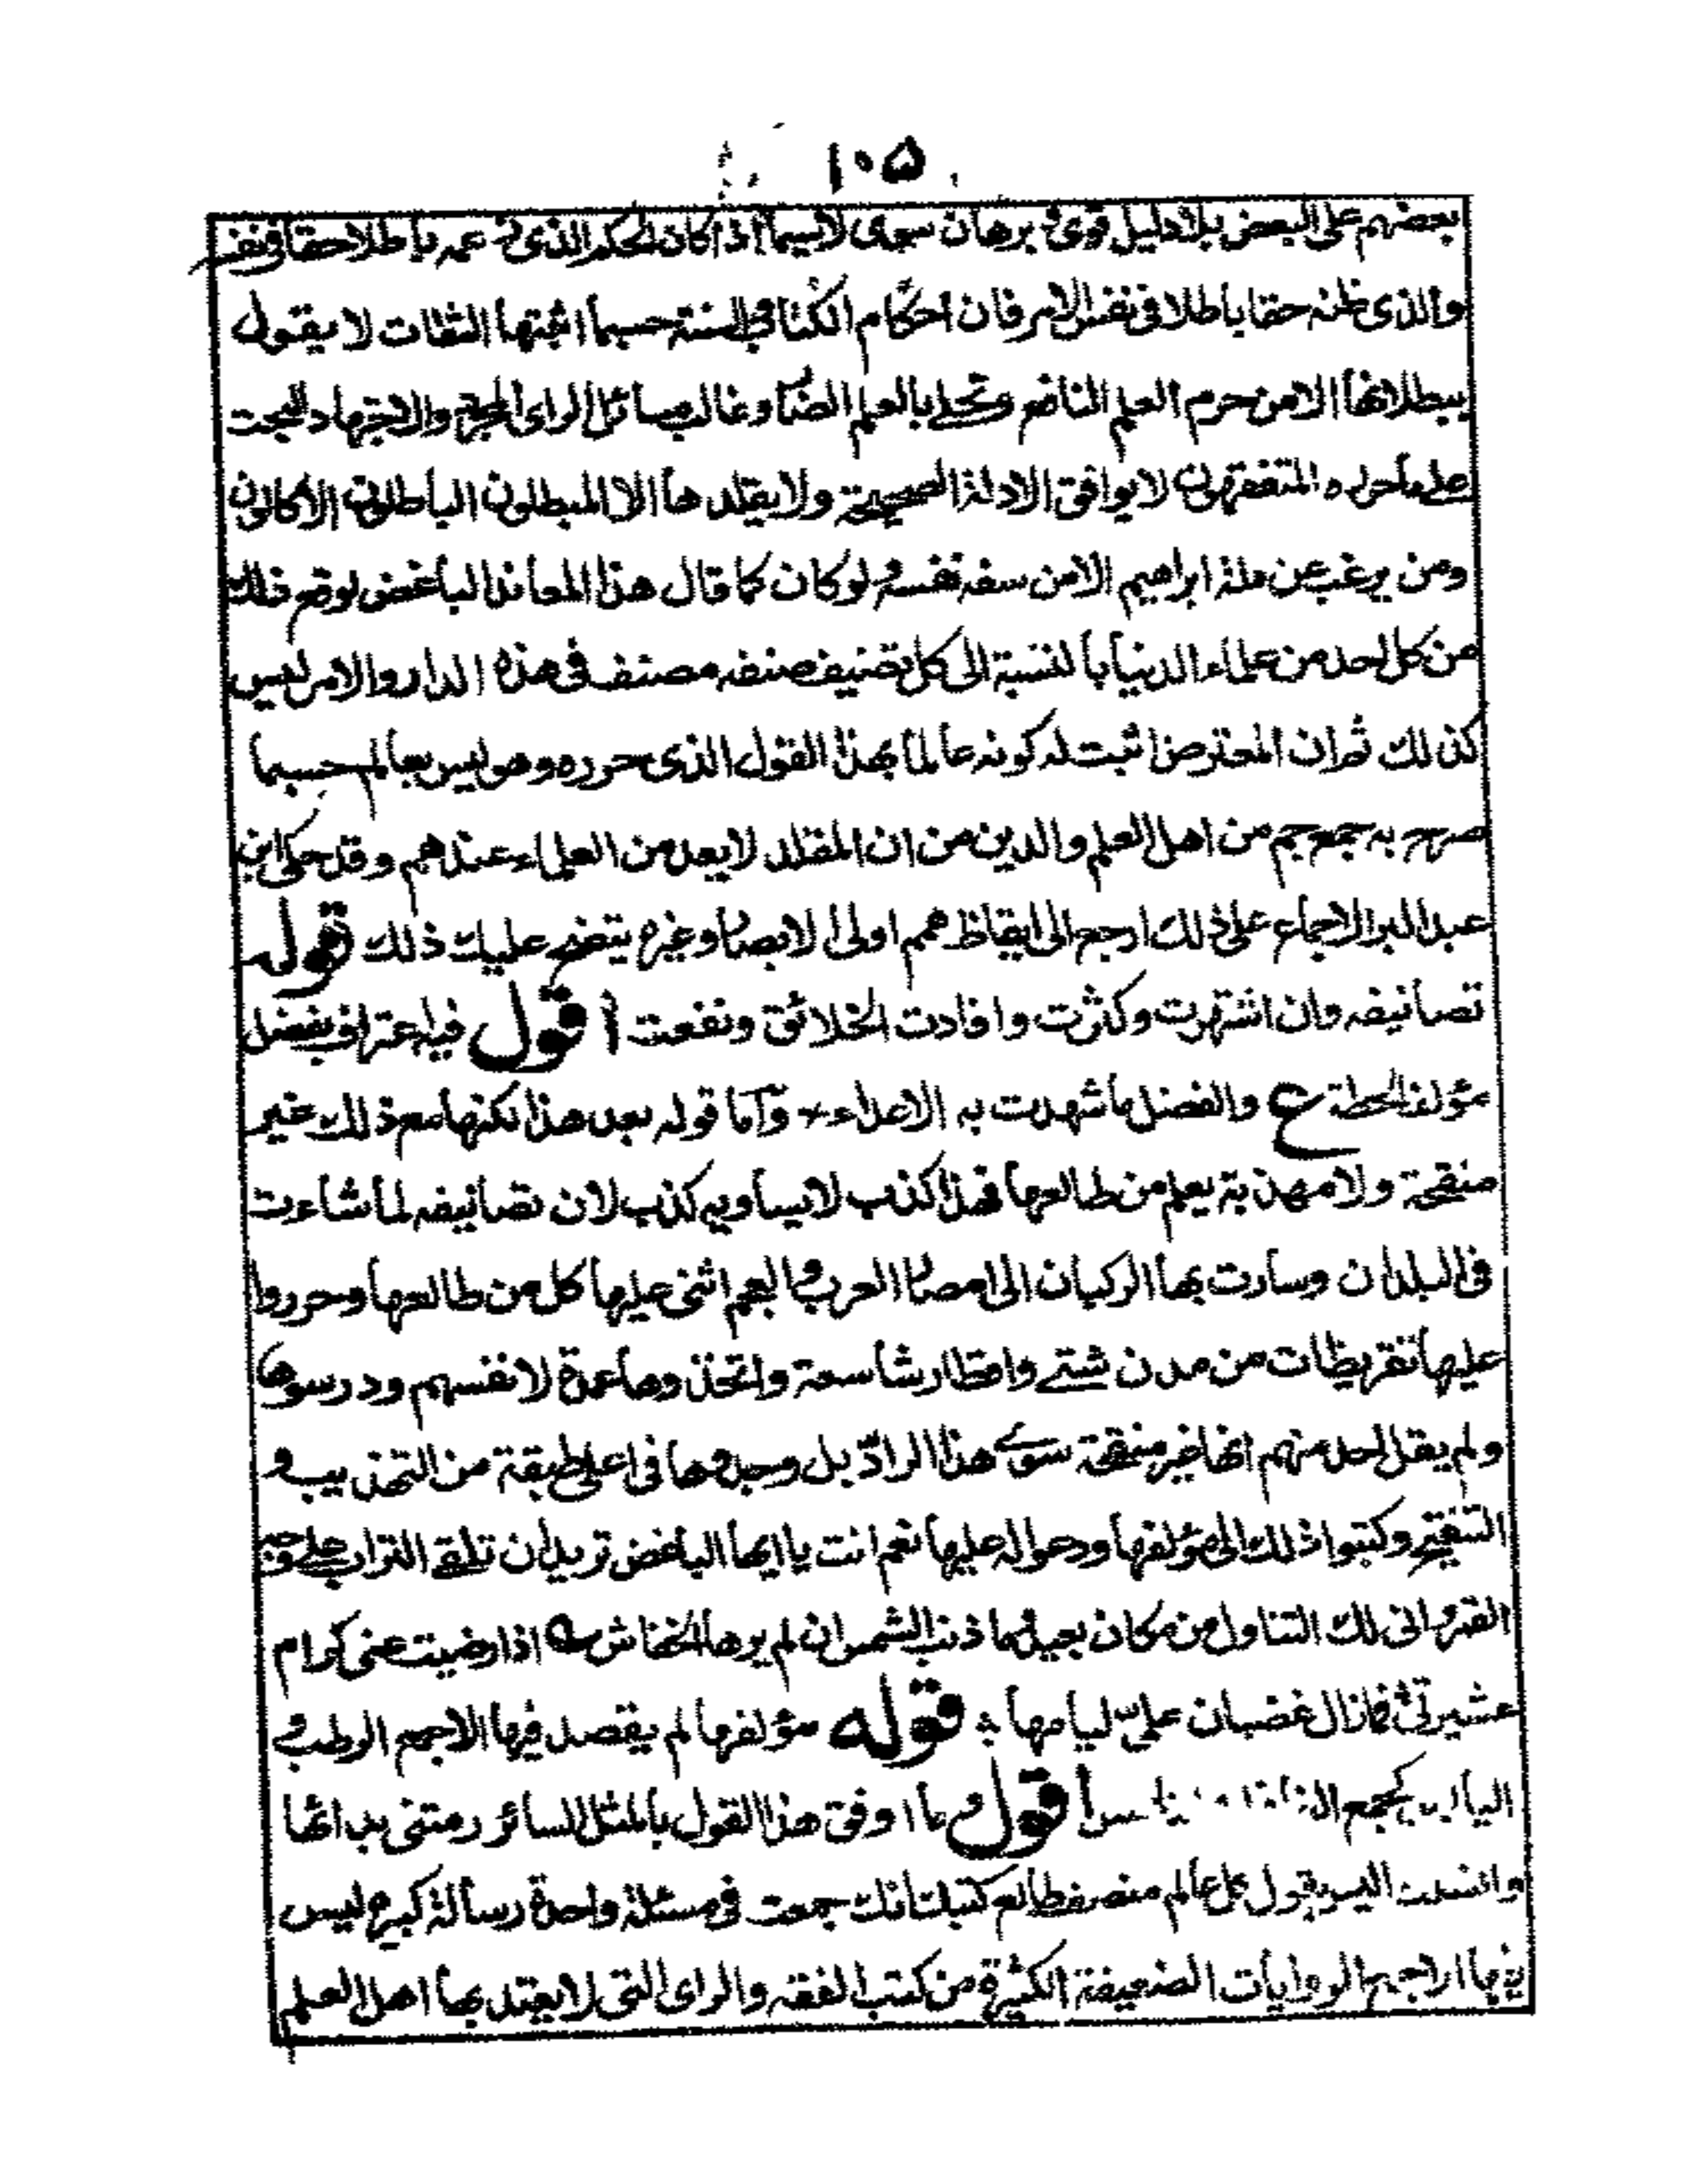 ١٠٥
بعضهم على البعض بلا دليل قوى وبرهان سوى لاسيما اذا كان الحكم الذى زعمه باطلا حقا فى نفسه
والذى ظنه حقا باطلا فى نفس الامر فان احكام الكتاب والسنة حسبما اثبتها الثقات لا يقول
ببطلانها الا من حرم العلم النافع وتحلى بالعلم الضار وغالب مسائل الراى المجرد والاجتهاد البحت
على ما حرره المتفقهون لا يوافق الادلة الصحيحة ولا يقلدها الا المبطلون الباطلون الاكالون
ومن يرغب عن ملة ابراهيم الا من سفه نفسه ولو كان كما قال هذا المعاند الباغض لوقع ذلك
من كل احد من علماء الدنيا بالنسبة الى كل تصنيف صنفه مصنف فى هذه الدار والامر ليس
كذلك ثم ان المعترض اثبت له كونه عالما بهذا القول الذى حرره وهو ليس بعالم حسبما
صرح به جمع جم من اهل العلم والدين من ان المقلد لا يعد من العلماء عندهم وقد حكى ابن
عبد البر الاجماع على ذلك ارجع الى ايقاظ همم اولى الابصار وغيره يتضح عليك ذلك قوله
تصانيفه وان اشتهرت وكثرت وافادت الخلائق ونفعت اقول فيه اعتراف بفضل
مؤلف الحطة ع والفضل ما شهدت به الاعداء * وآما قوله بعد هذا لكنها مع ذلك غير
منقحة ولا مهذبة يعلم من طالعها فهذا كذب لا يساويه كذب لان تصانيفه لما شاعت
فى البلدان وسارت بها الركبان الى امصار العرب والعجم اثنى عليها كل من طالعها وحرروا
عليها تقريظات من مدن شتے واقطار شاسعة واتخذوها عمدة لانفسهم ودرسوها
ولم يقل احد منهم انها غير منقحة سوے هذا الرادّ بل وجدوها فى اعلى طبقة من التهذيب و
التنقيح وكتبوا ذلك الى مؤلفها ودعوا له عليها نعم انت يا ايها الباغض تريد ان تلقے التراب على وجه
القمر وانى لك التناول من مكان بعيد وما ذنب الشمس ان لم يرها الخفاش اذا رضيت عنى كرام
عشيرتى فمازال غضبان علىّ ليامها ؞ قوله مؤلفها لم يقصد فيها الا جمع الرطب و
اليابس كجمع اقول ما اوفق هذا القول بالمثل السائر رمتنى بدائها
وانسلت اليس يقول كل عالم منصف طالع كتبك انك جمعت فى مسئلة واحدة رسالة كبيرة ليس
فيها الا جمع الروايات الضعيفة الكثيرة من كتب الفقه والراى التى لا يعتد بها اهل العلم